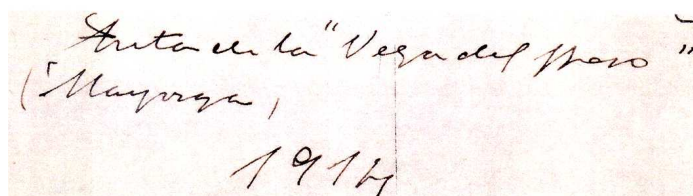 Anta de la "Vega del Peso"
(Mayorga)
1914